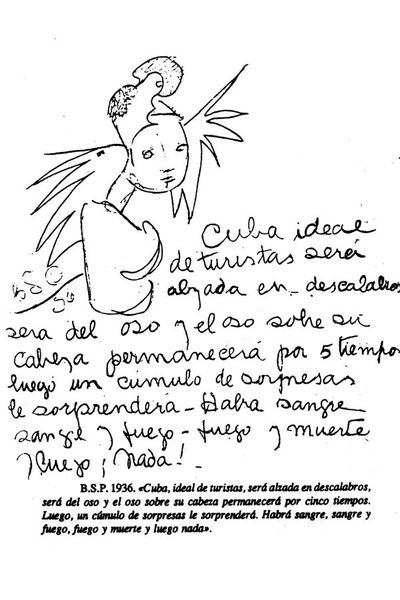 Cuba ideal
de turistas será
alzada en - descalabros
sera del oso y el oso sobre su
cabeza permanecerá por 5 tiempos
luego un cúmulo de sorpresas
le sorprenderá - Habra sangre
sangre y fuego - fuego y muerte
y luego ¡Nada!.
B.S.P. 1936. «Cuba, ideal de turistas, será alzada en descalabros,
será del oso y el oso sobre su cabeza permanecerá por cinco tiempos.
Luego, un cúmulo de sorpresas le sorprenderá. Habrá sangre, sangre y
fuego, fuego y muerte y luego nada».